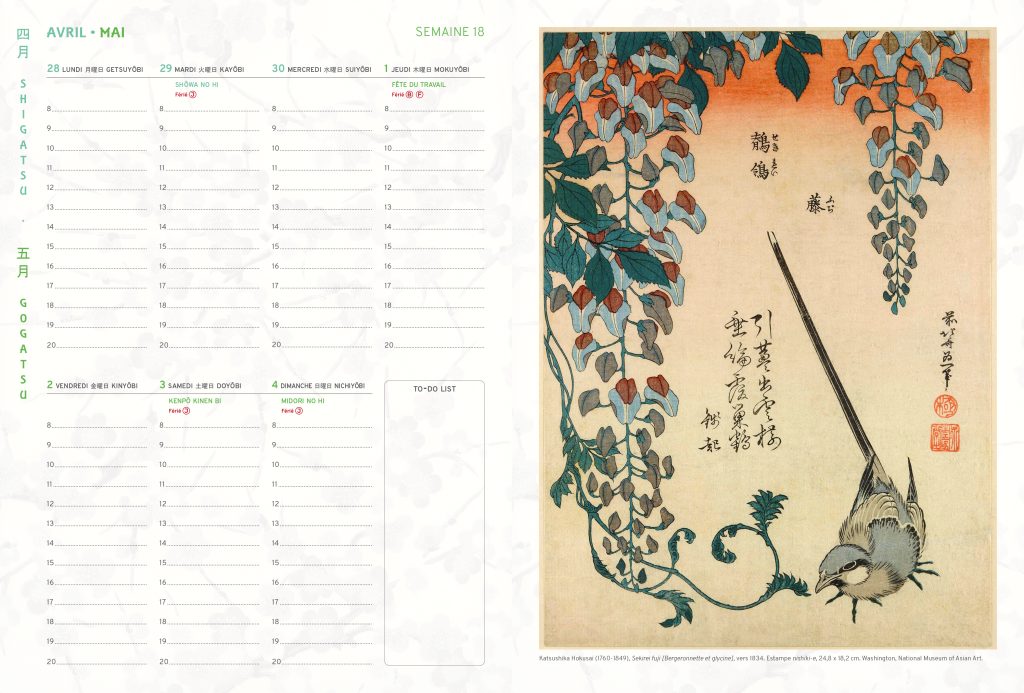 四月 SHIGATSU · 五月 GOGATSU
AVRIL • MAI
SEMAINE 18
28 LUNDI 月曜日 GETSUYŌBI
8
9
10
11
12
13
14
15
16
17
18
19
20
29 MARDI 火曜日 KAYŌBI
SHŌWA NO HI
Férié J
8
9
10
11
12
13
14
15
16
17
18
19
20
30 MERCREDI 水曜日 SUIYŌBI
8
9
10
11
12
13
14
15
16
17
18
19
20
1 JEUDI 木曜日 MOKUYŌBI
FÊTE DU TRAVAIL
Férié B F
8
9
10
11
12
13
14
15
16
17
18
19
20
2 VENDREDI 金曜日 KINYŌBI
8
9
10
11
12
13
14
15
16
17
18
19
20
3 SAMEDI 土曜日 DOYŌBI
KENPŌ KINEN BI
Férié J
8
9
10
11
12
13
14
15
16
17
18
19
20
4 DIMANCHE 日曜日 NICHIYŌBI
MIDORI NO HI
Férié J
8
9
10
11
12
13
14
15
16
17
18
19
20
TO-DO LIST
鶺鴒
せきれい
藤
ふぢ
Katsushika Hokusai (1760-1849), Sekirei fuji [Bergeronnette et glycine], vers 1834. Estampe nishiki-e, 24,8 x 18,2 cm. Washington, National Museum of Asian Art.